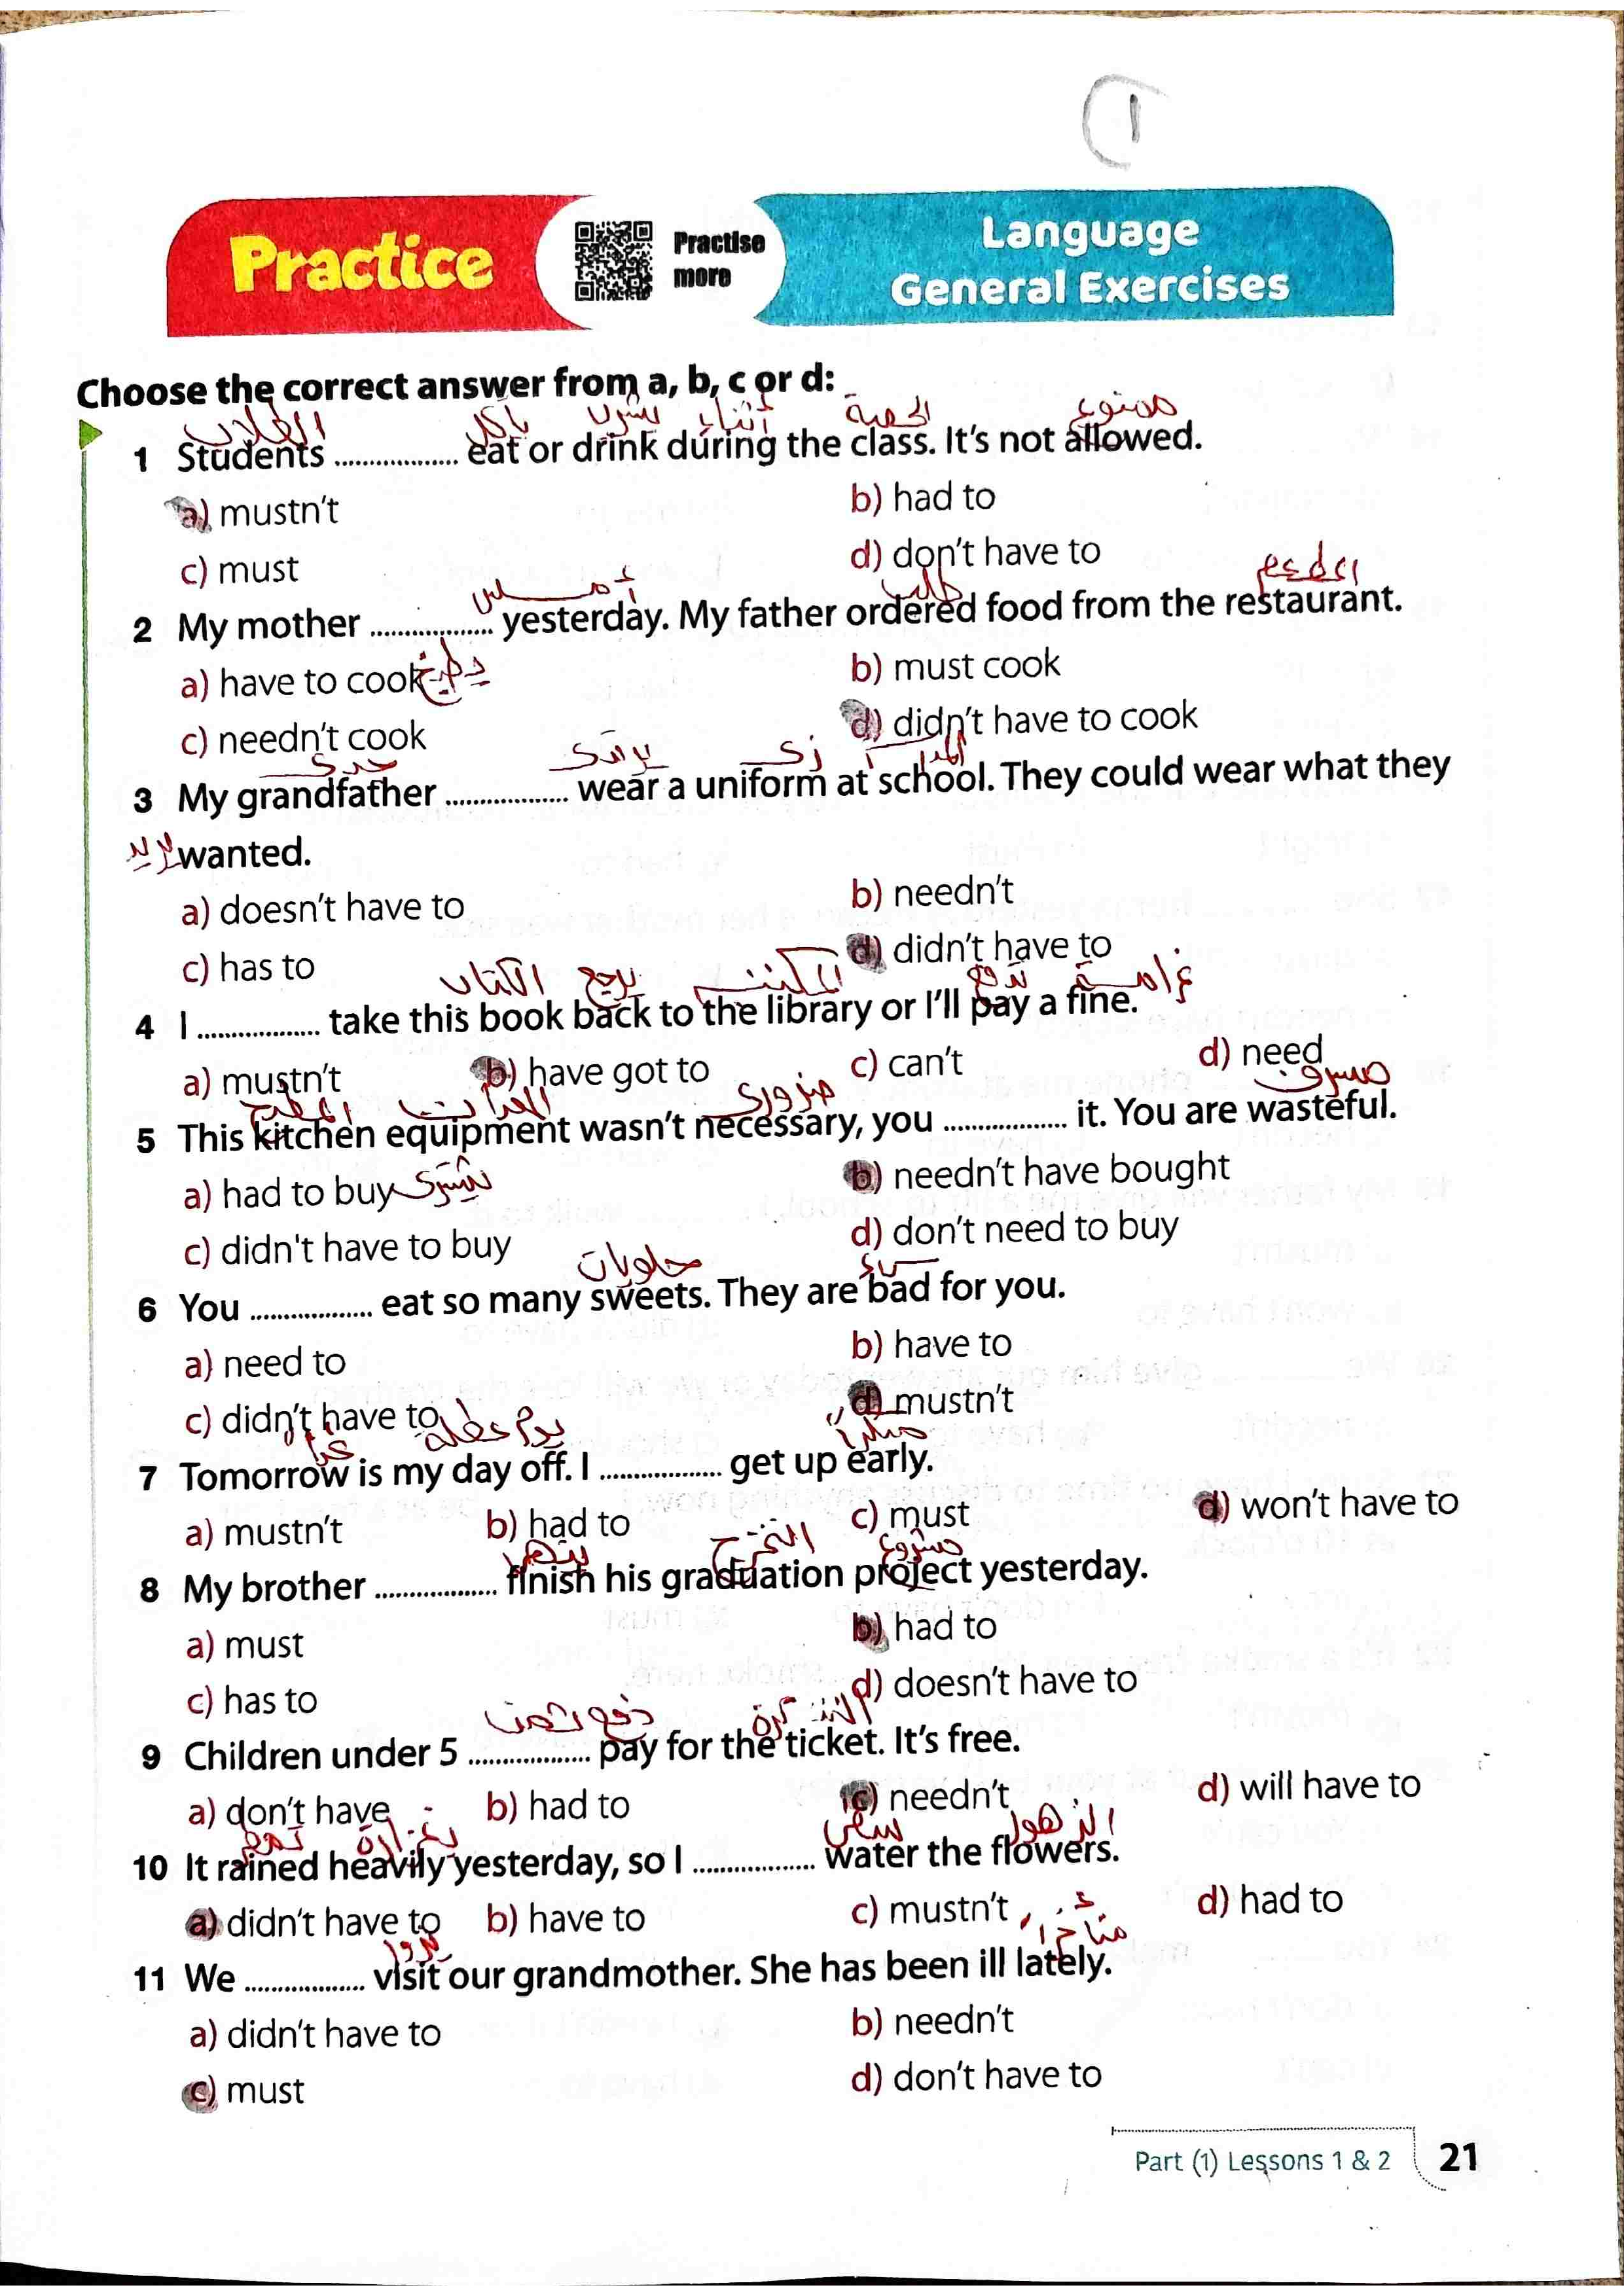 1
Practice
Practise
more
Language
General Exercises
Choose the correct answer from a, b, c or d:
الطلاب يأكل يشرب أثناء الحصة ممنوع
1 Students .................. eat or drink during the class. It's not allowed.
a) mustn't b) had to
c) must d) don't have to
أمس طلب المطعم
2 My mother .................. yesterday. My father ordered food from the restaurant.
a) have to cook يطبخ b) must cook
c) needn't cook d) didn't have to cook
جدى يرتدى زى المدرسة
3 My grandfather .................. wear a uniform at school. They could wear what they
wanted.
a) doesn't have to b) needn't
c) has to d) didn't have to
الكتاب يرجع المكتبة تدفع غرامة
4 I .................. take this book back to the library or I'll pay a fine.
a) mustn't b) have got to c) can't d) need
المطبخ ضرورى مسرف
5 This kitchen equipment wasn't necessary, you .................. it. You are wasteful.
a) had to buy يشترى b) needn't have bought
c) didn't have to buy d) don't need to buy
حلويات
6 You .................. eat so many sweets. They are bad for you.
a) need to b) have to
c) didn't have to d) mustn't
غدا يوم عطلة مبكرا
7 Tomorrow is my day off. I .................. get up early.
a) mustn't b) had to c) must d) won't have to
ينهى التخرج مشروع
8 My brother .................. finish his graduation project yesterday.
a) must b) had to
c) has to d) doesn't have to
التذكرة
9 Children under 5 .................. pay for the ticket. It's free.
a) don't have b) had to c) needn't d) will have to
تمطر بغزارة سقى الزهور
10 It rained heavily yesterday, so I .................. water the flowers.
a) didn't have to b) have to c) mustn't d) had to
يزور متأخرا
11 We .................. visit our grandmother. She has been ill lately.
a) didn't have to b) needn't
c) must d) don't have to
Part (1) Lessons 1 & 2 21